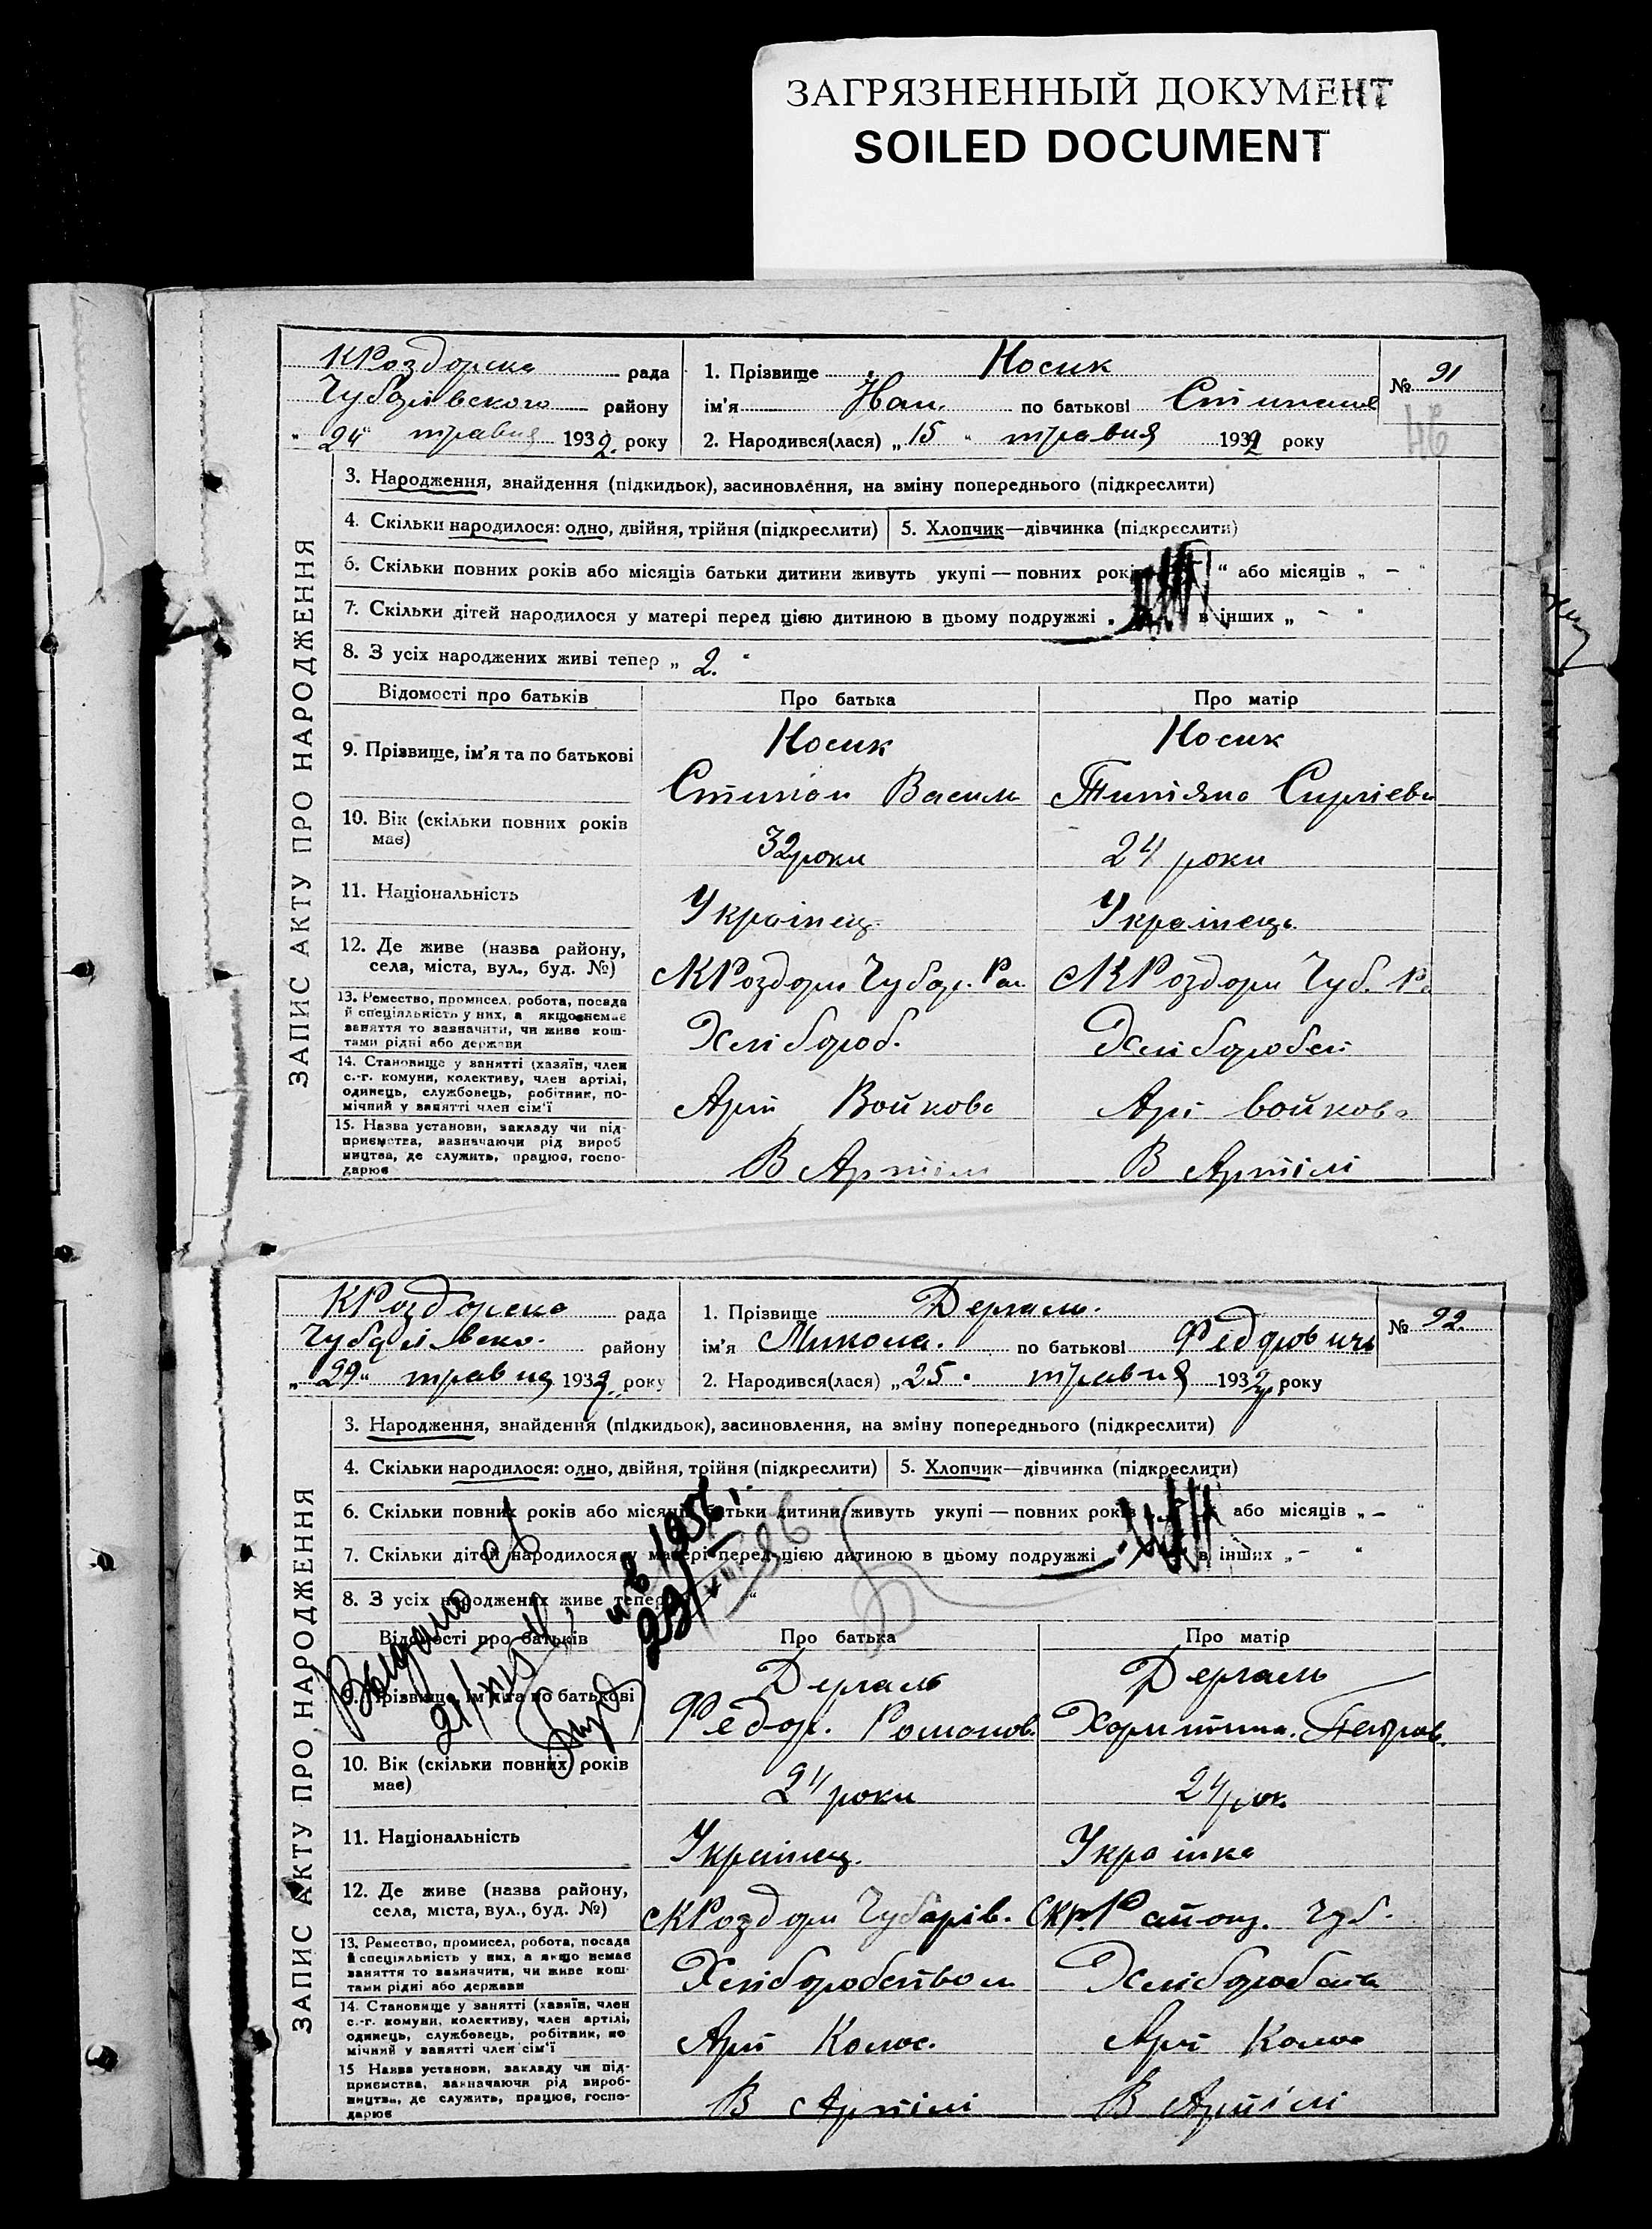 ЗАГРЯЗНЕННЫЙ ДОКУМЕНТ
SOILED DOCUMENT
ЗАПИС АКТУ ПРО НАРОДЖЕННЯ
КРоздорска рада
району
"24" травня 1932 року
1. Прізвище Носик
ім'я Іван. по батькові
2. Народився(лася) "15" травня 1932 року
№ 91
46
3. Народження, знайдення (підкидьок), засиновлення, на зміну попереднього (підкреслити)
4. Скільки народилося: одно, двійня, трійня (підкреслити)
5. Хлопчик—дівчинка (підкреслити)
6. Скільки повних років або місяців батьки дитини живуть укупі — повних років " або місяців „ — "
7. Скільки дітей народилося у матері перед цією дитиною в цьому подружжі в інших „ — "
8. З усіх народжених живі тепер „ 2. "
Відомості про батьків
Про батька
Про матір
9. Прізвище, ім'я та по батькові
Носик
Носик
Васил
10. Вік (скільки повних років
має)
32 роки
24 роки
11. Національність
Українец.
Українець.
12. Де живе (назва району,
села, міста, вул., буд. №)
13. Ремество, промисел, робота, посада
й спеціяльність у них, а якщо немає
заняття то зазначити, чи живе кош-
тами рідні або держави
Хлібороб.
14. Становище у занятті (хазяїн, член
с.-г. комуни, колективу, член артілі,
одинець, службовець, робітник, по-
мічний у занятті член сім'ї
Арт Войкова
Арт Войкова
15. Назва установи, закладу чи під-
приємства, зазначаючи рід вироб
ництва, де служить, працює, госпо-
дарює
В Артілі
В Артілі
ЗАПИС АКТУ ПРО НАРОДЖЕННЯ
КРоздорска рада
району
"29" травня 1932 року
1. Прізвище Дергаль.
ім'я Микола. по батькові Фёдорович
2. Народився(лася) "25" травня 1932 року
№ 92.
3. Народження, знайдення (підкидьок), засиновлення, на зміну попереднього (підкреслити)
4. Скільки народилося: одно, двійня, трійня (підкреслити)
5. Хлопчик—дівчинка (підкреслити)
6. Скільки повних років або місяців батьки дитини живуть укупі — повних років або місяців „ — "
7. Скільки дітей народилося у матері перед цією дитиною в цьому подружжі в інших „ — "
8. З усіх народжених живе тепер "
Відомості про батьків
Про батька
Про матір
9. Прізвище, ім'я та по батькові
Дергаль
Дергаль
Фёдор. Романов.
Харитина. Петров.
10. Вік (скільки повних років
має)
24 роки
24 рок
11. Національність
Українец.
Українка
12. Де живе (назва району,
села, міста, вул., буд. №)
13. Ремество, промисел, робота, посада
й спеціяльність у них, а якщо немає
заняття то зазначити, чи живе кош-
тами рідні або держави
Хліборобством
14. Становище у занятті (хазяїн, член
с.-г. комуни, колективу, член артілі,
одинець, службовець, робітник, по
мічний у занятті член сім'ї
Арт Колос.
Арт Колос
15 Назва установи, закладу чи під-
приємства, зазначаючи рід вироб-
ництва, де служить, працює, госпо-
дарює
В Артілі
В Артілі